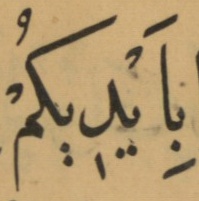 بِاَيْدِيكُمْ